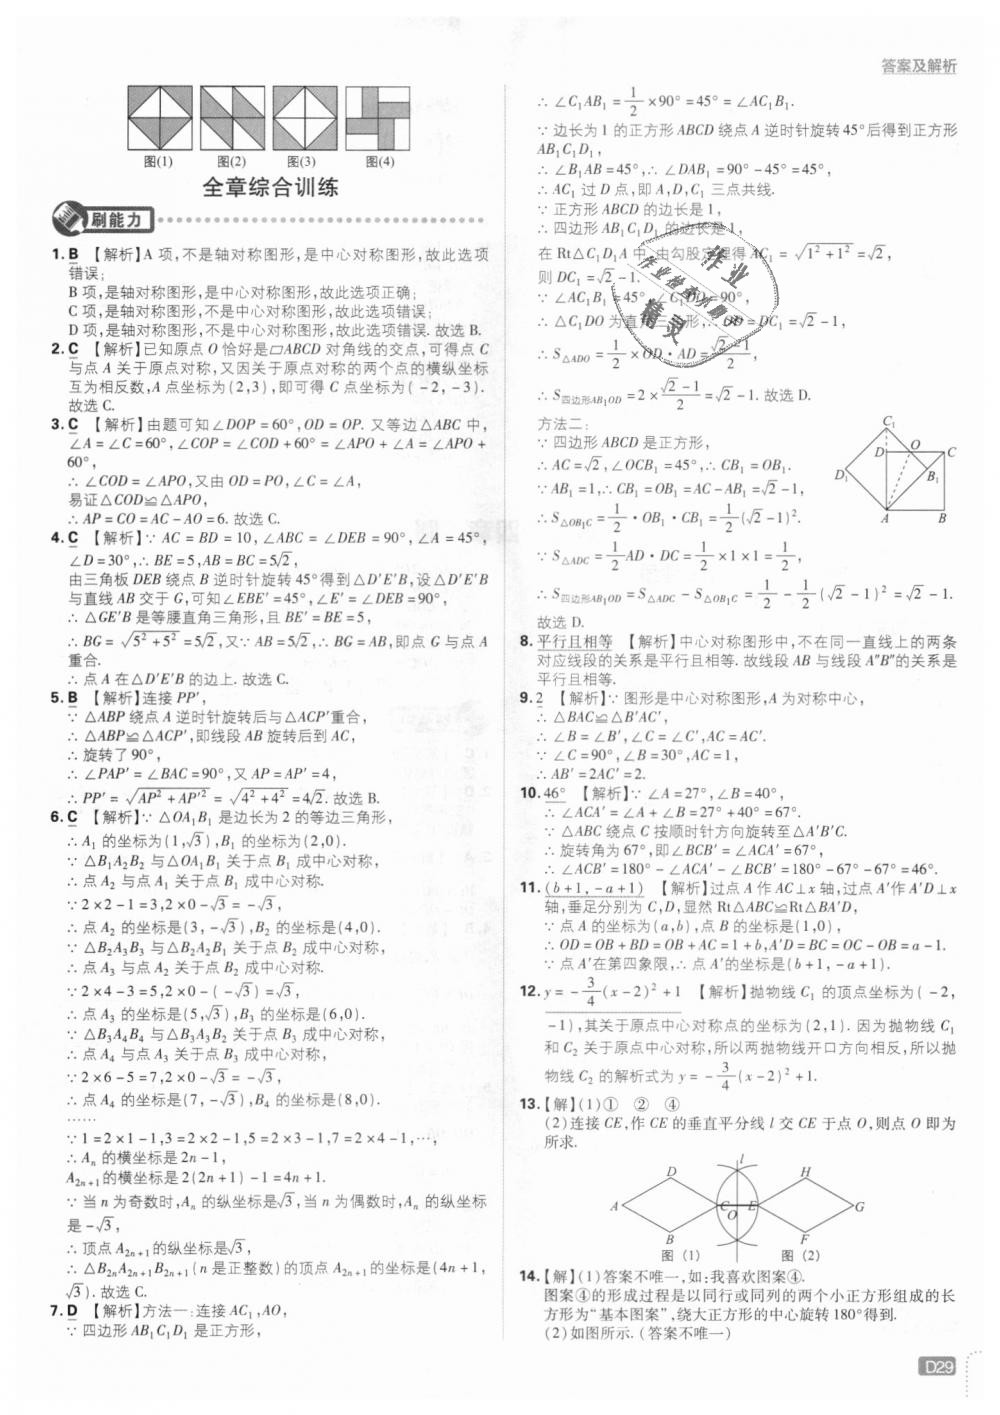 答案及解析
图(1) 图(2) 图(3) 图(4)
全章综合训练
刷能力
1. B 【解析】A 项,不是轴对称图形,是中心对称图形,故此选项
错误;
B 项,是轴对称图形,是中心对称图形,故此选项正确;
C 项,是轴对称图形,不是中心对称图形,故此选项错误;
D 项,是轴对称图形,不是中心对称图形,故此选项错误. 故选 B.
2. C 【解析】已知原点 O 恰好是▱ABCD 对角线的交点,可得点 C
与点 A 关于原点对称,又因关于原点对称的两个点的横纵坐标
互为相反数,A 点坐标为(2,3),即可得 C 点坐标为(-2,-3).
故选 C.
3. C 【解析】由题可知∠DOP=60°,OD=OP. 又等边△ABC 中,
∠A=∠C=60°,∠COP=∠COD+60°=∠APO+∠A=∠APO+
60°,
∴∠COD=∠APO,又由 OD=PO,∠C=∠A,
易证△COD≌△APO,
∴AP=CO=AC-AO=6. 故选 C.
4. C 【解析】∵AC=BD=10,∠ABC=∠DEB=90°,∠A=45°,
∠D=30°,∴BE=5,AB=BC=5√2,
由三角板 DEB 绕点 B 逆时针旋转 45°得到△D'E'B,设△D'E'B
与直线 AB 交于 G,可知∠EBE'=45°,∠E'=∠DEB=90°,
∴△GE'B 是等腰直角三角形,且 BE'=BE=5,
∴BG=√(5²+5²)=5√2,又∵AB=5√2,∴BG=AB,即点 G 与点 A
重合.
∴点 A 在△D'E'B 的边上. 故选 C.
5. B 【解析】连接 PP',
∵△ABP 绕点 A 逆时针旋转后与△ACP'重合,
∴△ABP≌△ACP',即线段 AB 旋转后到 AC,
∴旋转了 90°,
∴∠PAP'=∠BAC=90°,又 AP=AP'=4,
∴PP'=√(AP²+AP'²)=√(4²+4²)=4√2. 故选 B.
6. C 【解析】∵△OA₁B₁ 是边长为 2 的等边三角形,
∴A₁ 的坐标为(1,√3),B₁ 的坐标为(2,0).
∵△B₁A₂B₂ 与△OA₁B₁ 关于点 B₁ 成中心对称,
∴点 A₂ 与点 A₁ 关于点 B₁ 成中心对称.
∵2×2-1=3,2×0-√3=-√3,
∴点 A₂ 的坐标是(3,-√3),B₂ 的坐标是(4,0).
∵△B₂A₃B₃ 与△B₂A₂B₁ 关于点 B₂ 成中心对称,
∴点 A₃ 与点 A₂ 关于点 B₂ 成中心对称.
∵2×4-3=5,2×0-(-√3)=√3,
∴点 A₃ 的坐标是(5,√3),B₃ 的坐标是(6,0).
∵△B₃A₄B₄ 与△B₃A₃B₂ 关于点 B₃ 成中心对称,
∴点 A₄ 与点 A₃ 关于点 B₃ 成中心对称,
∵2×6-5=7,2×0-√3=-√3,
∴点 A₄ 的坐标是(7,-√3),B₄ 的坐标是(8,0).
……
∵1=2×1-1,3=2×2-1,5=2×3-1,7=2×4-1,…,
∴Aₙ 的横坐标是 2n-1,
A₂ₙ₊₁的横坐标是 2(2n+1)-1=4n+1.
∵当 n 为奇数时,Aₙ 的纵坐标是√3,当 n 为偶数时,Aₙ 的纵坐标
是-√3,
∴顶点 A₂ₙ₊₁的纵坐标是√3,
∴△B₂ₙA₂ₙ₊₁B₂ₙ₊₁(n 是正整数)的顶点 A₂ₙ₊₁的坐标是(4n+1,
√3). 故选 C.
7. D 【解析】方法一:连接 AC₁,AO,
∵四边形 AB₁C₁D₁ 是正方形,
∴∠C₁AB₁=1/2×90°=45°=∠AC₁B₁.
∵边长为 1 的正方形 ABCD 绕点 A 逆时针旋转 45°后得到正方形
AB₁C₁D₁,
∴∠B₁AB=45°,∴∠DAB₁=90°-45°=45°,
∴AC₁ 过 D 点,即 A,D,C₁ 三点共线.
∵正方形 ABCD 的边长是 1,
∴四边形 AB₁C₁D₁ 的边长是 1,
在 Rt△C₁D₁A 中,由勾股定理得 AC₁=√(1²+1²)=√2,
则 DC₁=√2-1.
∵∠AC₁B₁=45°,∠C₁DO=90°,
∴△C₁DO 为直角三角形,∴OD=DC₁=√2-1,
∴S△ADO=1/2×OD·AD=(√2-1)/2,
∴S四边形AB₁OD=2×(√2-1)/2=√2-1. 故选 D.
方法二:
∵四边形 ABCD 是正方形,
∴AC=√2,∠OCB₁=45°,∴CB₁=OB₁.
∵AB₁=1,∴CB₁=OB₁=AC-AB₁=√2-1,
∴S△OB₁C=1/2·OB₁·CB₁=1/2(√2-1)².
∵S△ADC=1/2AD·DC=1/2×1×1=1/2,
∴S四边形AB₁OD=S△ADC-S△OB₁C=1/2-1/2(√2-1)²=√2-1.
故选 D.
C₁
D O C
D₁ B₁
A B
8. 平行且相等 【解析】中心对称图形中,不在同一直线上的两条
对应线段的关系是平行且相等. 故线段 AB 与线段 A″B″的关系是
平行且相等.
9. 2 【解析】∵图形是中心对称图形,A 为对称中心,
∴△BAC≌△B'AC',
∴∠B=∠B',∠C=∠C',AC=AC'.
∵∠C=90°,∠B=30°,AC=1,
∴AB'=2AC'=2.
10. 46° 【解析】∵∠A=27°,∠B=40°,
∴∠ACA'=∠A+∠B=27°+40°=67°.
∵△ABC 绕点 C 按顺时针方向旋转至△A'B'C.
∴旋转角为 67°,即∠BCB'=∠ACA'=67°,
∴∠ACB'=180°-∠ACA'-∠BCB'=180°-67°-67°=46°.
11. (b+1,-a+1) 【解析】过点 A 作 AC⊥x 轴,过点 A'作 A'D⊥x
轴,垂足分别为 C,D,显然 Rt△ABC≌Rt△BA'D,
∵点 A 的坐标为(a,b),点 B 的坐标是(1,0),
∴OD=OB+BD=OB+AC=1+b,A'D=BC=OC-OB=a-1.
∵点 A'在第四象限,∴点 A'的坐标是(b+1,-a+1).
12. y=-3/4(x-2)²+1 【解析】抛物线 C₁ 的顶点坐标为(-2,
-1),其关于原点中心对称点的坐标为(2,1). 因为抛物线 C₁
和 C₂ 关于原点中心对称,所以两抛物线开口方向相反,所以抛
物线 C₂ 的解析式为 y=-3/4(x-2)²+1.
13. 【解】(1)① ② ④
(2)连接 CE,作 CE 的垂直平分线 l 交 CE 于点 O,则点 O 即为
所求.
l
D H
A C O E G
B F
图 (1) 图 (2)
14. 【解】(1)答案不唯一,如:我喜欢图案④.
图案④的形成过程是以同行或同列的两个小正方形组成的长
方形为“基本图案”,绕大正方形的中心旋转 180°得到.
(2)如图所示. (答案不唯一)
作业
作业检查小助手
精灵
D29